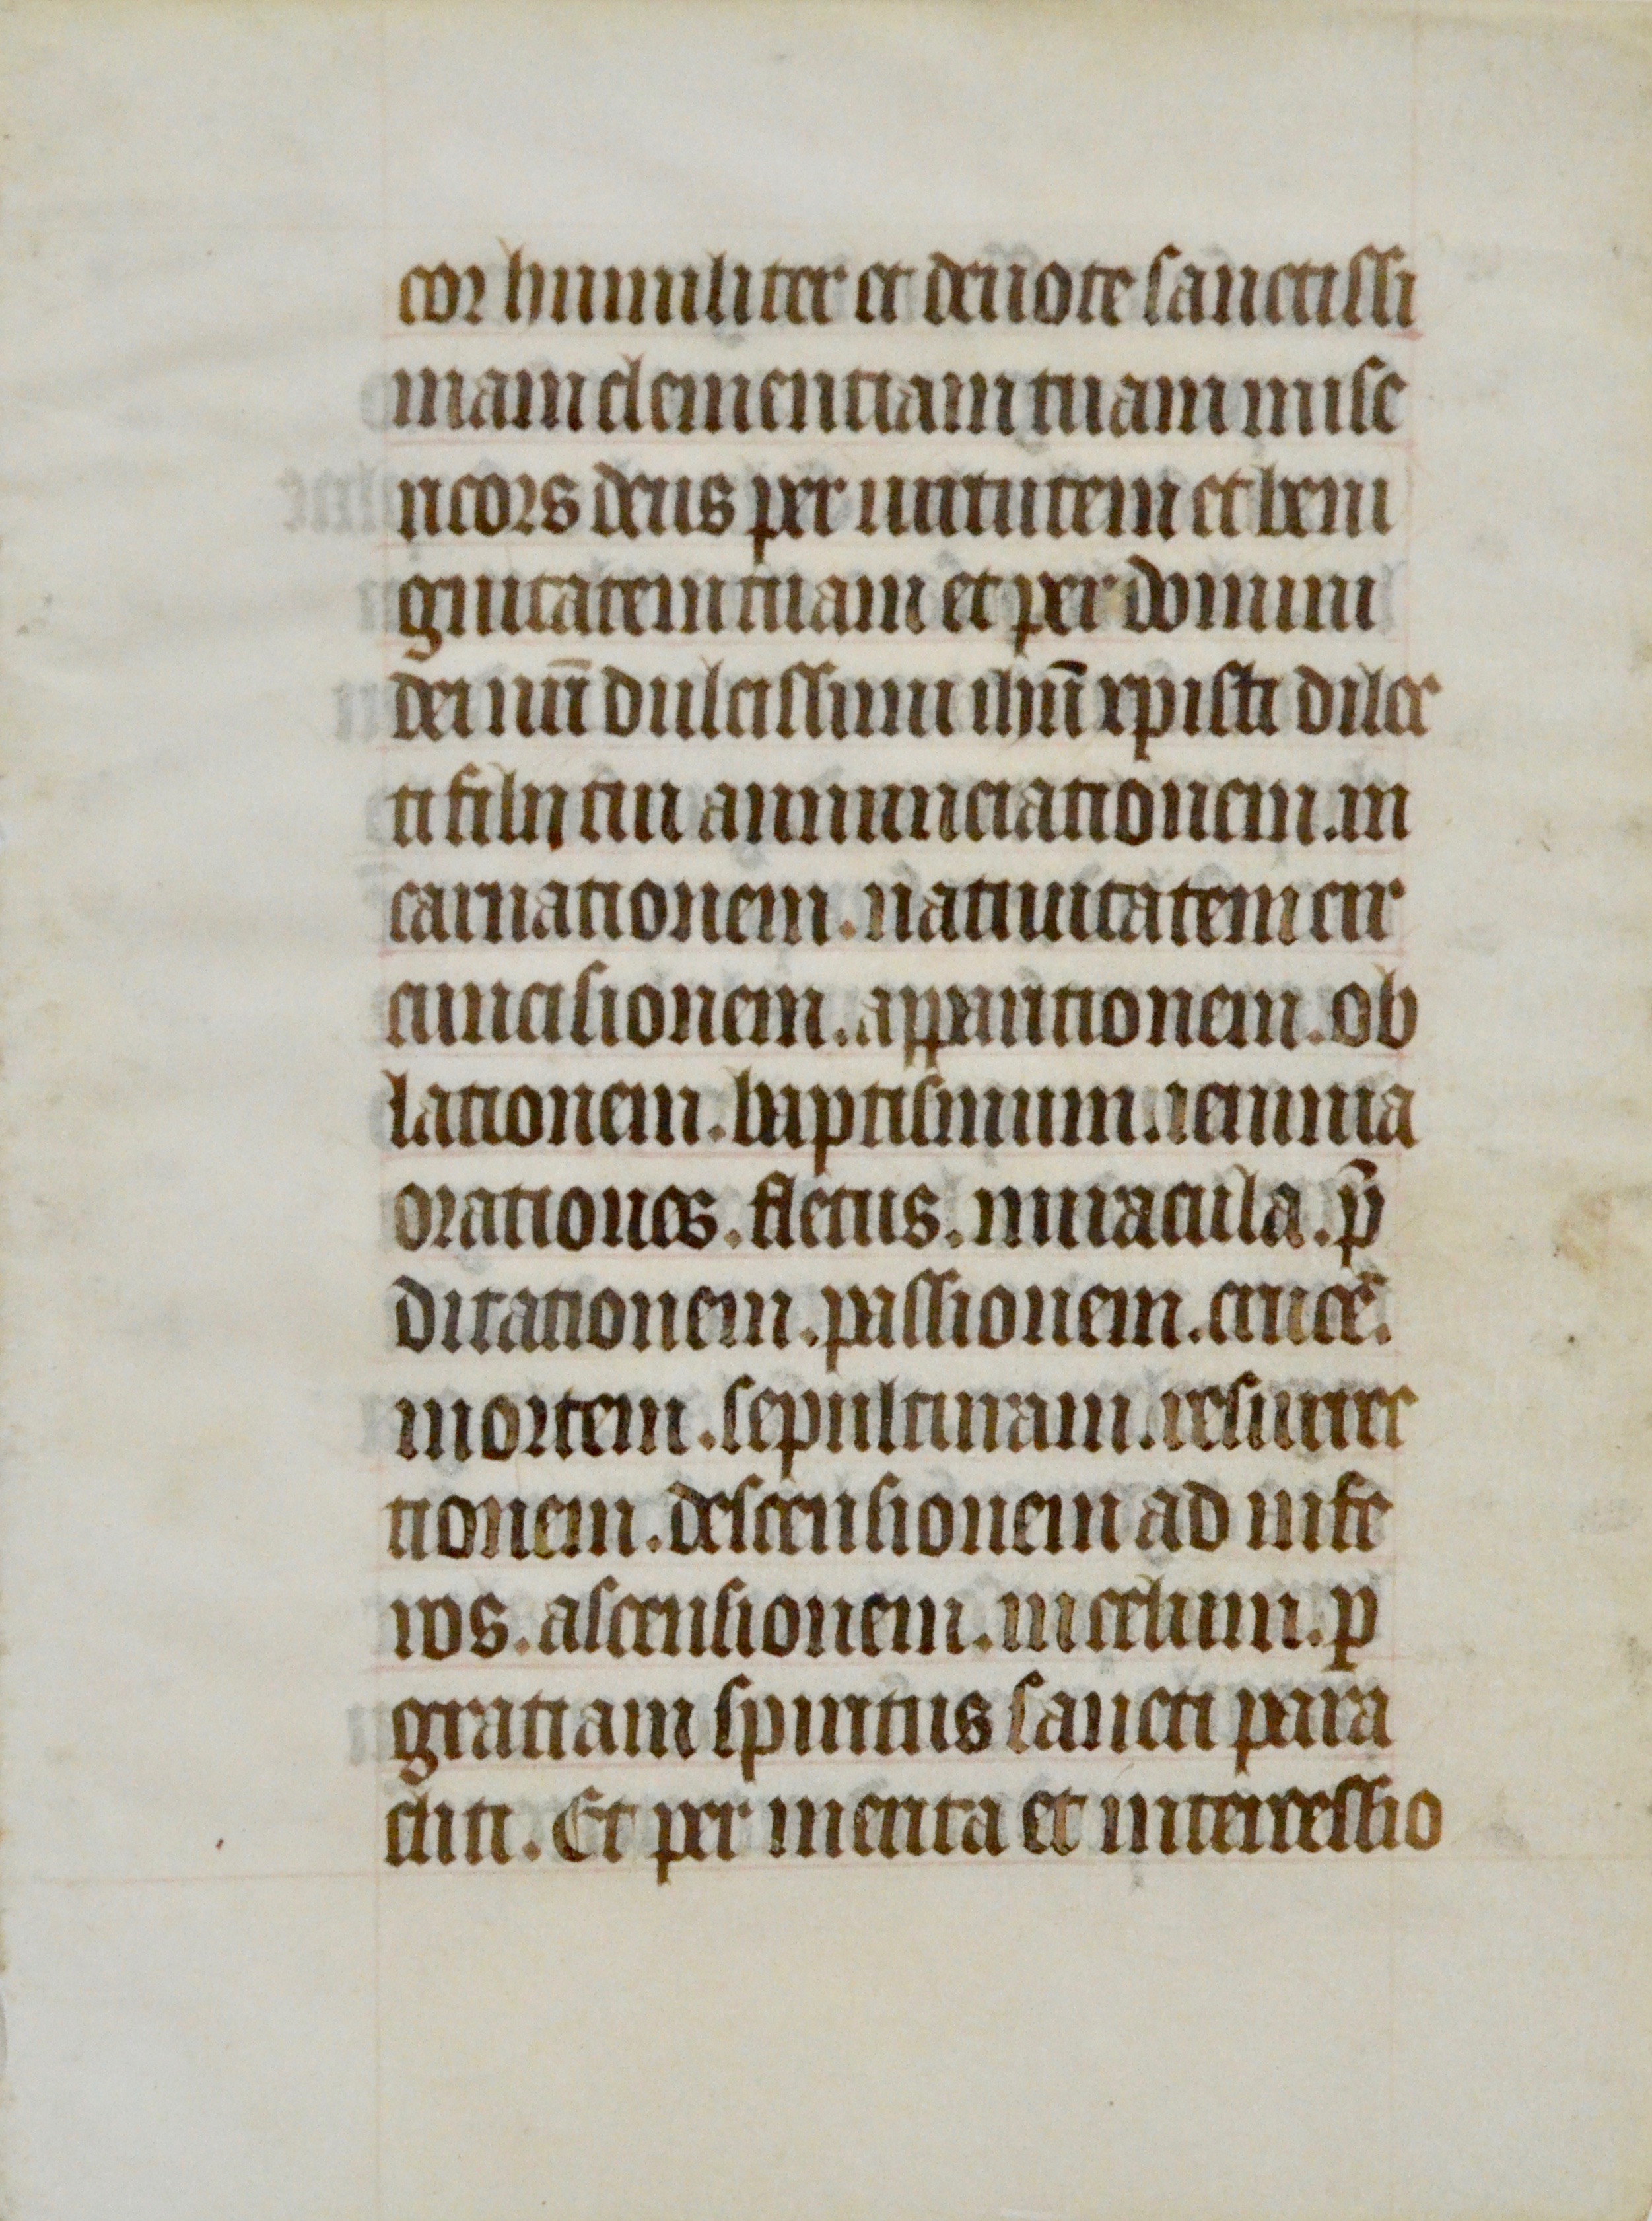 cor humiliter et deuote sanctissi
mam clementiam tuam mise
ricors deus per uirtutem et beni
gnitatem tuam et per domini
dei nr̄i dulcissimi ihū xpisti dilec
ti filij tui annunciationem. in
carnationem. natiuitatem cir
cuncisionem. apparitionem. ob
lationem. baptismum. ieiunia
orationes. fletus. miracula. p̄
dicationem. passionem. crucē.
mortem. sepulturam. resurrec
tionem. descensionem ad infe
ros. ascensionem. in celum. p
gratiam spiritus sancti para
cliti. Et per merita et intercessio